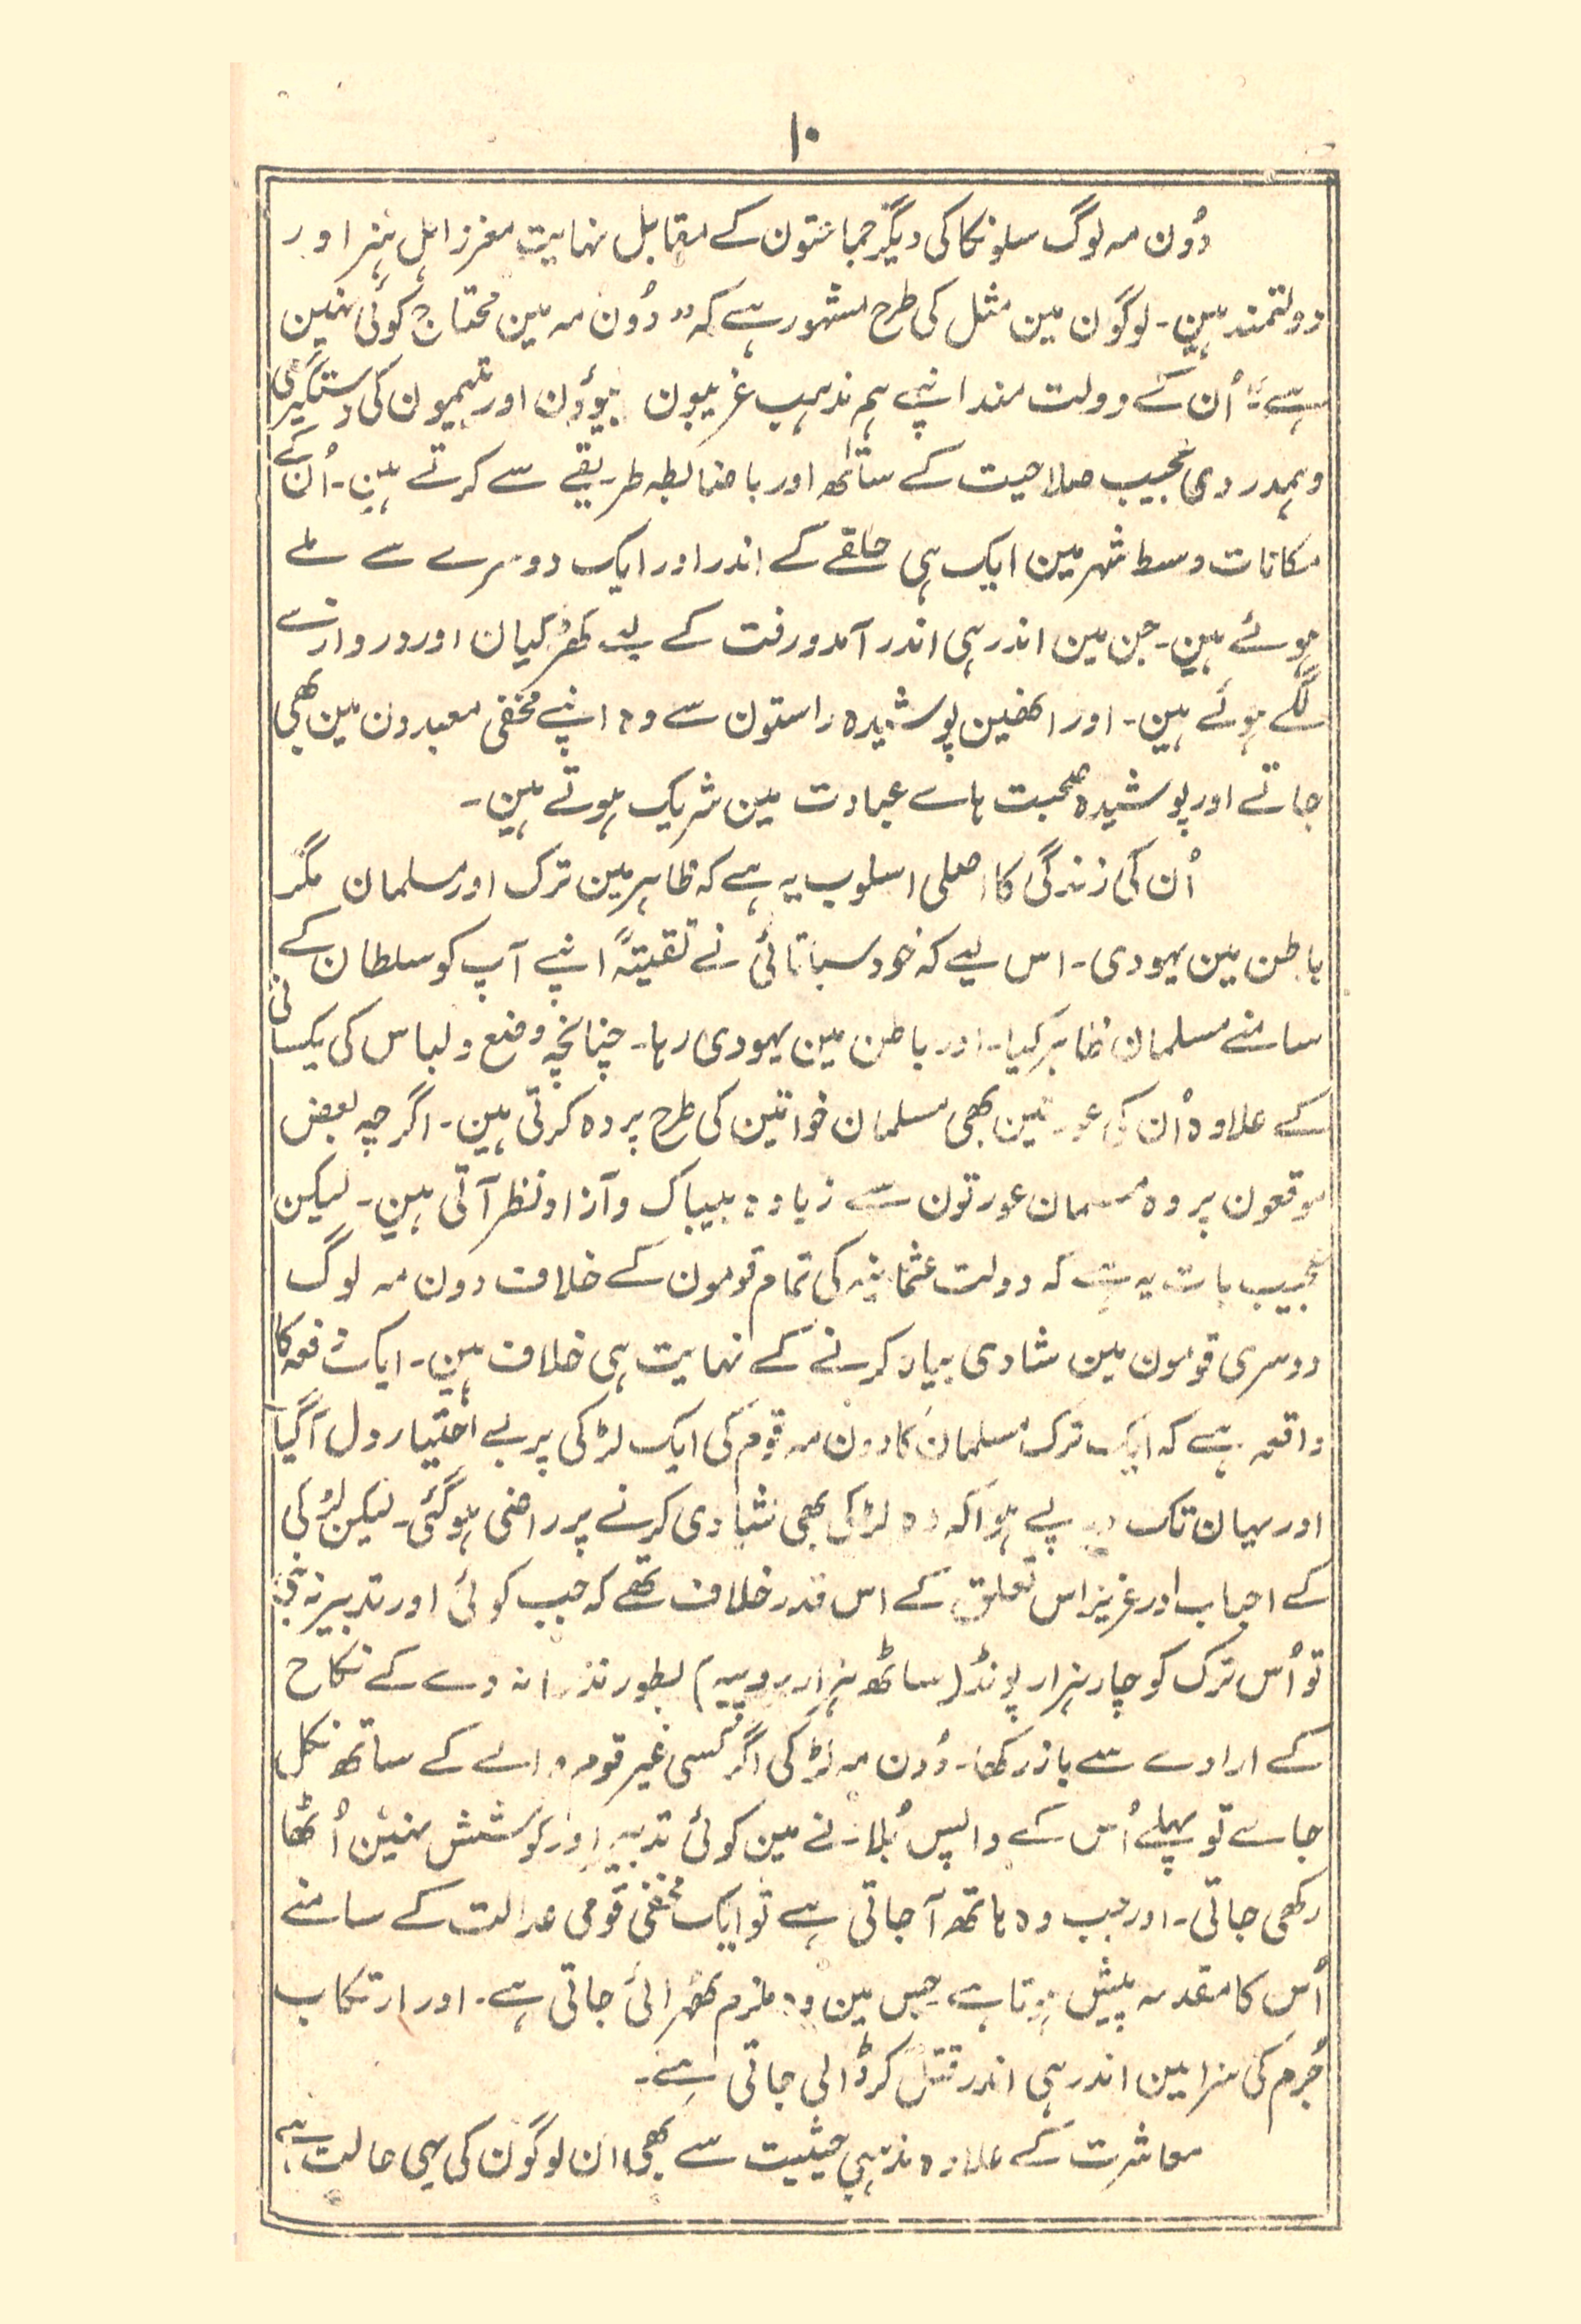 ۱۰
دُون مہ لوگ سلونکا کی دیگر جماعتون کے مقابل نہایت معزز اہل ہنر اور
دولتمند ہین۔ لوگون مین مثل کی طرح مشہور ہے کہ "دُون مہ مین محتاج کوئی نہین
ہے" اُن کے دولت مند اپنے ہم مذہب غریبون بیوُون اور یتیمون کی دستگیری
و ہمدردی عجیب صلاحیت کے ساتھ اور باضابطہ طریقے سے کرتے ہین۔ اُن کے
مکانات وسط شہر مین ایک ہی حلقے کے اندر اور ایک دوسرے سے ملے
ہوئے ہین۔ جن مین اندر ہی اندر آمدورفت کے لیے کھڑکیان اور دروازے
لگے ہوئے ہین۔ اور انھین پوشیدہ راستون سے وہ اپنے مخفی معبدون مین بھی
جاتے اور پوشیدہ صحبت ہاے عبادت مین شریک ہوتے ہین۔
اُن کی زندگی کا اصلی اسلوب یہ ہے کہ ظاہر مین ترک اور مسلمان مگر
باطن مین یہودی۔ اس لیے کہ خود سباتائی نے تقیتہً اپنے آپ کو سلطان کے
سامنے مسلمان ظاہر کیا۔ اور باطن مین یہودی رہا۔ چنانچہ وضع و لباس کی یکسانی
کے علاوہ اُن کی عورتین بھی مسلمان خواتین کی طرح پردہ کرتی ہین۔ اگرچہ بعض
موقعون پر وہ مسلمان عورتون سے زیادہ بیباک و آزاد نظر آتی ہین۔ لیکن
عجیب بات یہ ہے کہ دولت عثمانیہ کی تمام قومون کے خلاف دون مہ لوگ
دوسری قومون مین شادی بیاہ کرنے کے نہایت ہی خلاف ہین۔ ایک دفعہ کا
واقعہ ہے کہ ایک ترک مسلمان کا دون مہ قوم کی ایک لڑکی پر بے اختیار دل آگیا
اور یہان تک درپے ہوا کہ وہ لڑکی بھی شادی کرنے پر راضی ہوگئی۔ لیکن لڑکی
کے احباب اور عزیز اس تعلق کے اس قدر خلاف تھے کہ جب کوئی اور تدبیر نہ بنی
تو اُس ترک کو چار ہزار پونڈ (ساٹھ ہزار روپیہ) بطور نذرانہ دے کے نکاح
کے ارادے سے باز رکھا۔ دُون مہ لڑکی اگر کسی غیر قوم والے کے ساتھ نکل
جاے تو پہلے اُس کے واپس بُلانے مین کوئی تدبیر اور کوشش نہین اُٹھا
رکھی جاتی۔ اور جب وہ ہاتھ آجاتی ہے تو ایک مخفی قومی عدالت کے سامنے
اُس کا مقدمہ پیش ہوتا ہے جس مین وہ ملزم ٹھرائی جاتی ہے۔ اور ارتکاب
جُرم کی سزا مین اندر ہی اندر قتل کر ڈالی جاتی ہے۔
معاشرت کے علاوہ مذہبی حیثیت سے بھی ان لوگون کی یہی حالت ہے